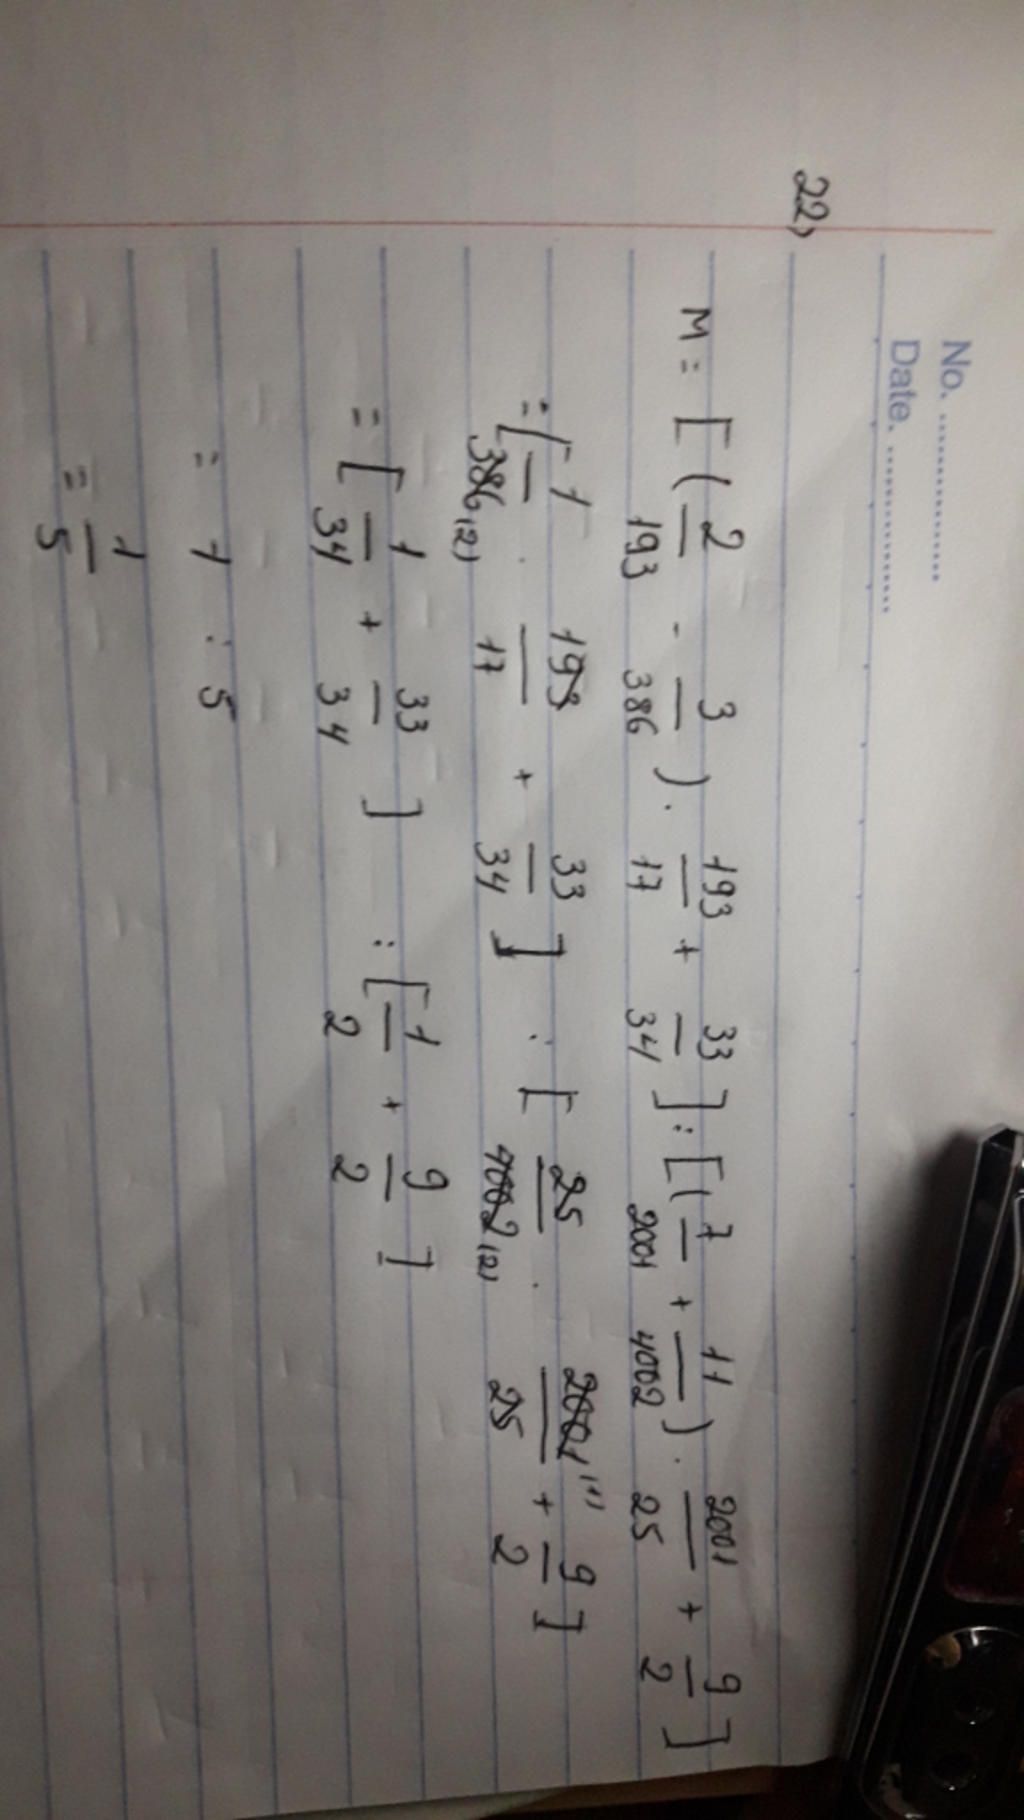 No. ................
Date. ................
22)
M = [ ( 2/193 - 3/386 ) . 193/17 + 33/34 ] : [ ( 7/2001 + 11/4002 ) . 2001/25 + 9/2 ]
= [ 1/386(2) . 193/17 + 33/34 ] : [ 25/4002(2) . 2001(1)/25 + 9/2 ]
= [ 1/34 + 33/34 ] : [ 1/2 + 9/2 ]
= 1 : 5
= 1/5